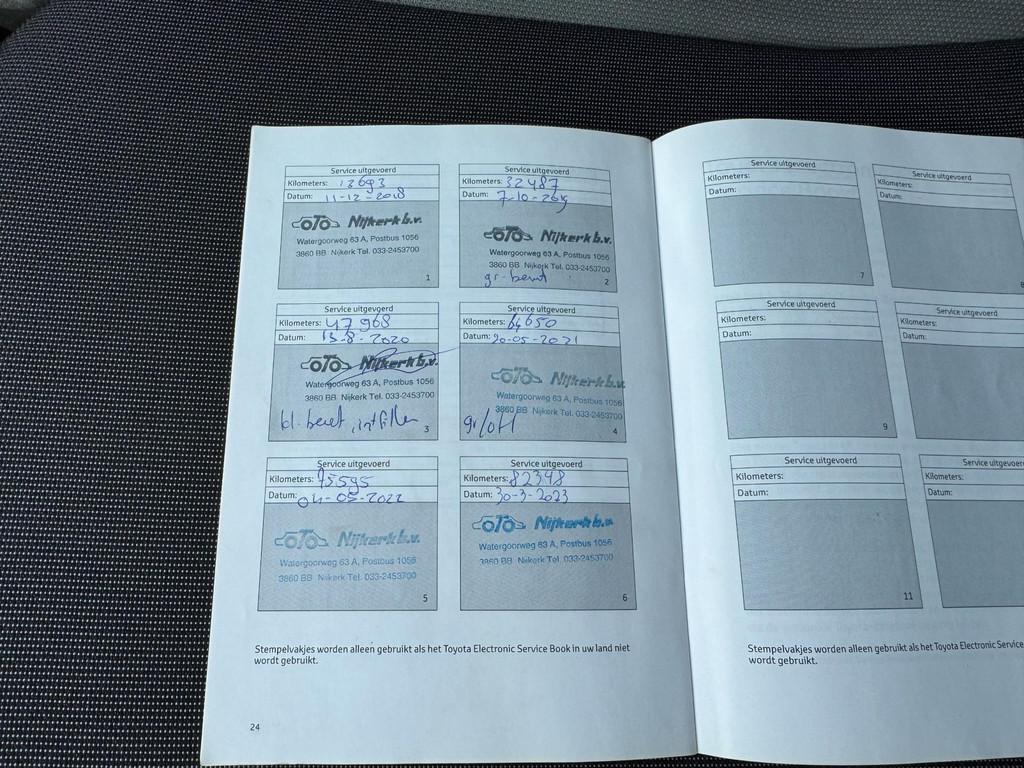 Service uitgevoerd
Kilometers: 12693
Datum: 11-12-2018
OTO Nijkerk b.v.
Watergoorweg 63 A, Postbus 1056
3860 BB Nijkerk Tel. 033-2453700
1
Service uitgevoerd
Kilometers: 32487
Datum: 7-10-2019
OTO Nijkerk b.v.
Watergoorweg 63 A, Postbus 1056
3860 BB Nijkerk Tel. 033-2453700
gr. beurt
2
Service uitgevoerd
Kilometers: 47968
Datum: 13-8-2020
OTO Nijkerk b.v.
Watergoorweg 63 A, Postbus 1056
3860 BB Nijkerk Tel. 033-2453700
kl. beurt, int filter
3
Service uitgevoerd
Kilometers: 64650
Datum: 20-05-2021
OTO Nijkerk b.v.
Watergoorweg 63 A, Postbus 1056
3860 BB Nijkerk Tel. 033-2453700
4
Service uitgevoerd
Kilometers: 75595
Datum: 04-05-2022
OTO Nijkerk b.v.
Watergoorweg 63 A, Postbus 1056
3860 BB Nijkerk Tel. 033-2453700
5
Service uitgevoerd
Kilometers: 82348
Datum: 30-3-2023
OTO Nijkerk b.v.
Watergoorweg 63 A, Postbus 1056
3860 BB Nijkerk Tel. 033-2453700
6
Stempelvakjes worden alleen gebruikt als het Toyota Electronic Service Book in uw land niet
wordt gebruikt.
24
Service uitgevoerd
Kilometers:
Datum:
7
Service uitgevoerd
Kilometers:
Datum:
8
Service uitgevoerd
Kilometers:
Datum:
9
Service uitgevoerd
Kilometers:
Datum:
Service uitgevoerd
Kilometers:
Datum:
11
Service uitgevoerd
Kilometers:
Datum:
Stempelvakjes worden alleen gebruikt als het Toyota Electronic Service
wordt gebruikt.